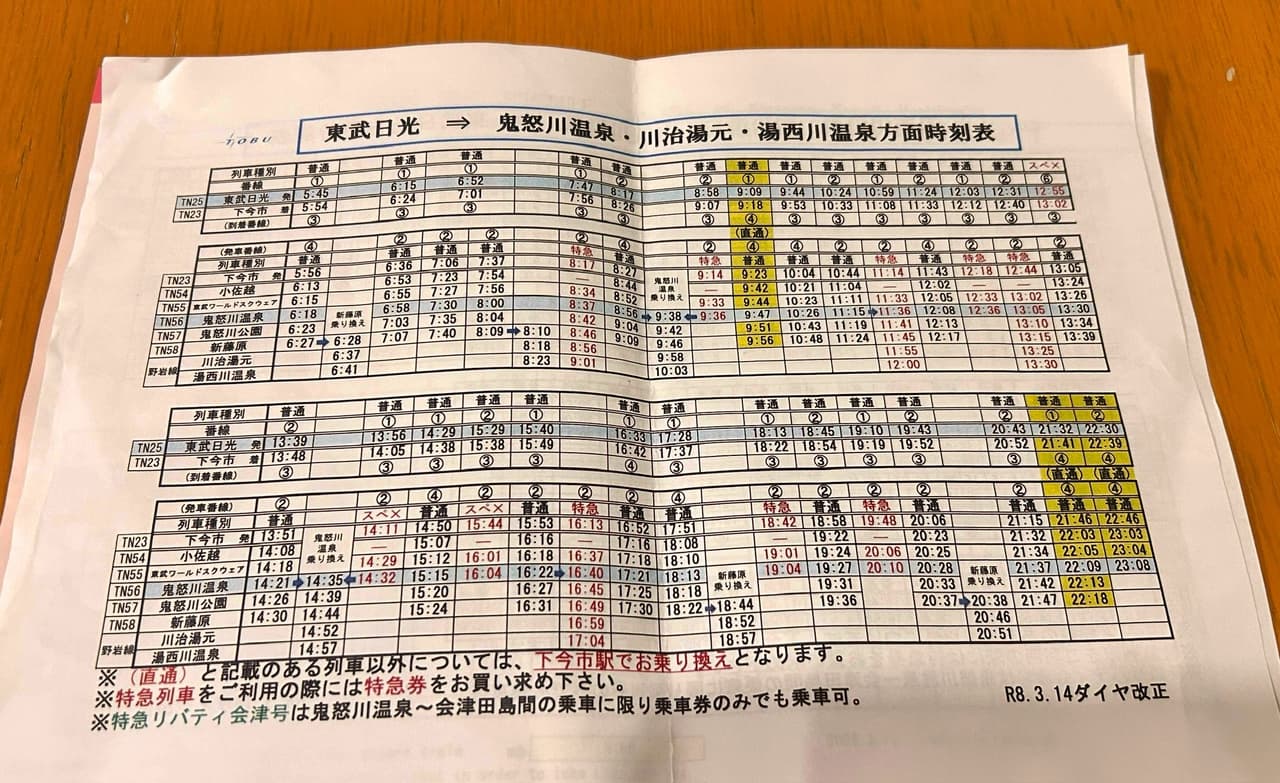 TOBU
東武日光 ⇒ 鬼怒川温泉・川治湯元・湯西川温泉方面時刻表
列車種別 普通 普通 普通 普通 普通 普通 普通 普通 普通 普通 普通 普通 普通 スペ×
番線 ① ① ① ① ② ② ① ② ① ② ① ② ② ⑥
TN25 東武日光 発 5:45 6:15 6:52 7:47 8:17 8:58 9:09 9:44 10:24 10:59 11:24 12:03 12:31 12:55
TN23 下今市 着 5:54 6:24 7:01 7:56 8:26 9:07 9:18 9:53 10:33 11:08 11:33 12:12 12:40 13:02
(到着番線) ③ ③ ③ ③ ③ ③ ④ ③ ③ ③ ③ ③ ③ ③
(直通)
(発車番線) ④ ② ② ② ② ④ ② ④ ④ ② ② ④ ② ② ②
列車種別 普通 普通 普通 普通 特急 普通 鬼怒川温泉乗り換え 特急 普通 普通 普通 特急 普通 特急 特急 普通
TN23 下今市 発 5:56 6:36 7:06 7:37 8:17 8:27 9:14 9:23 10:04 10:44 11:14 11:43 12:18 12:44 13:05
TN54 小佐越 6:13 6:53 7:23 7:54 8:34 8:44 — 9:42 10:21 11:04 — 12:02 — — 13:24
TN55 東武ワールドスクウェア 6:15 新藤原乗り換え 6:55 7:27 7:56 8:34 8:52 9:33 9:44 10:23 11:11 11:33 12:05 12:33 13:02 13:26
TN56 鬼怒川温泉 6:18 6:58 7:30 8:00 8:37 8:56 ➡ 9:38 ⬅ 9:36 9:47 10:26 11:15 ➡ 11:36 12:08 12:36 13:05 13:30
TN57 鬼怒川公園 6:23 7:03 7:35 8:04 8:42 9:04 9:42 9:51 10:43 11:19 11:41 12:13 13:10 13:34
TN58 新藤原 6:27 ➡ 6:28 7:07 7:40 8:09 ➡ 8:10 8:46 9:09 9:46 9:56 10:48 11:24 11:45 12:17 13:15 13:39
野岩線 川治湯元 6:37 8:18 8:56 9:58 11:55 13:25
湯西川温泉 6:41 8:23 9:01 10:03 12:00 13:30
列車種別 普通 普通 普通 普通 普通 普通 普通 普通 普通 普通 普通 普通 普通 普通
番線 ② ① ① ② ① ① ① ① ② ① ② ② ① ②
TN25 東武日光 発 13:39 13:56 14:29 15:29 15:40 16:33 17:28 18:13 18:45 19:10 19:43 20:43 21:32 22:30
TN23 下今市 着 13:48 14:05 14:38 15:38 15:49 16:42 17:37 18:22 18:54 19:19 19:52 20:52 21:41 22:39
(到着番線) ③ ③ ③ ③ ③ ④ ③ ③ ③ ③ ③ ③ ④ ④
(直通) (直通)
(発車番線) ② ② ④ ② ② ② ② ④ ② ② ② ② ② ④ ④
列車種別 普通 鬼怒川温泉乗り換え スペ× 普通 スペ× 普通 特急 普通 普通 特急 普通 特急 普通 普通 普通 普通
TN23 下今市 発 13:51 14:11 14:50 15:44 15:53 16:13 16:52 17:51 18:42 18:58 19:48 20:06 21:15 21:46 22:46
TN54 小佐越 14:08 — 15:07 — 16:16 — 17:16 18:08 — 19:22 — 20:23 21:32 22:03 23:03
TN55 東武ワールドスクウェア 14:18 14:29 15:12 16:01 16:18 16:37 17:18 18:10 新藤原乗り換え 19:01 19:24 20:06 20:25 新藤原乗り換え 21:34 22:05 23:04
TN56 鬼怒川温泉 14:21 ➡ 14:35 ⬅ 14:32 15:15 16:04 16:22 ➡ 16:40 17:21 18:13 19:04 19:27 20:10 20:28 21:37 22:09 23:08
TN57 鬼怒川公園 14:26 14:39 15:20 16:27 16:45 17:25 18:18 19:31 20:33 21:42 22:13
TN58 新藤原 14:30 14:44 15:24 16:31 16:49 17:30 18:22 ➡ 18:44 19:36 20:37 ➡ 20:38 21:47 22:18
野岩線 川治湯元 14:52 16:59 18:52 20:46
湯西川温泉 14:57 17:04 18:57 20:51
※（直通）と記載のある列車以外については、下今市駅でお乗り換えとなります。
※特急列車をご利用の際には特急券をお買い求め下さい。
※特急リバティ会津号は鬼怒川温泉～会津田島間の乗車に限り乗車券のみでも乗車可。
R8.3.14ダイヤ改正